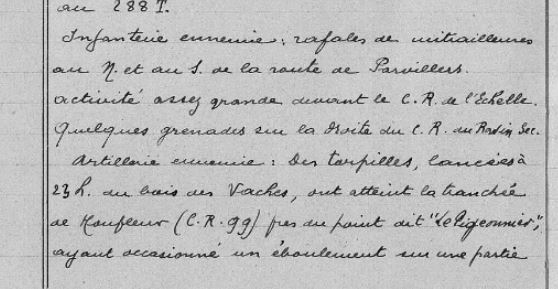 au 288 I.
Infanterie ennemie : rafales de mitrailleuses
au N. et au S. de la route de Parvillers.
activité assez grande devant le C.R. de l'Echelle.
Quelques grenades sur la droite du C.R. du Ravin Sec.
Artillerie ennemie : Des torpilles, lancées à
23 h. du bois des Vaches, ont atteint la tranchée
de Honfleur (C.R. 99) près du point dit "Le Pigeonnier",
ayant occasionné un éboulement sur une partie